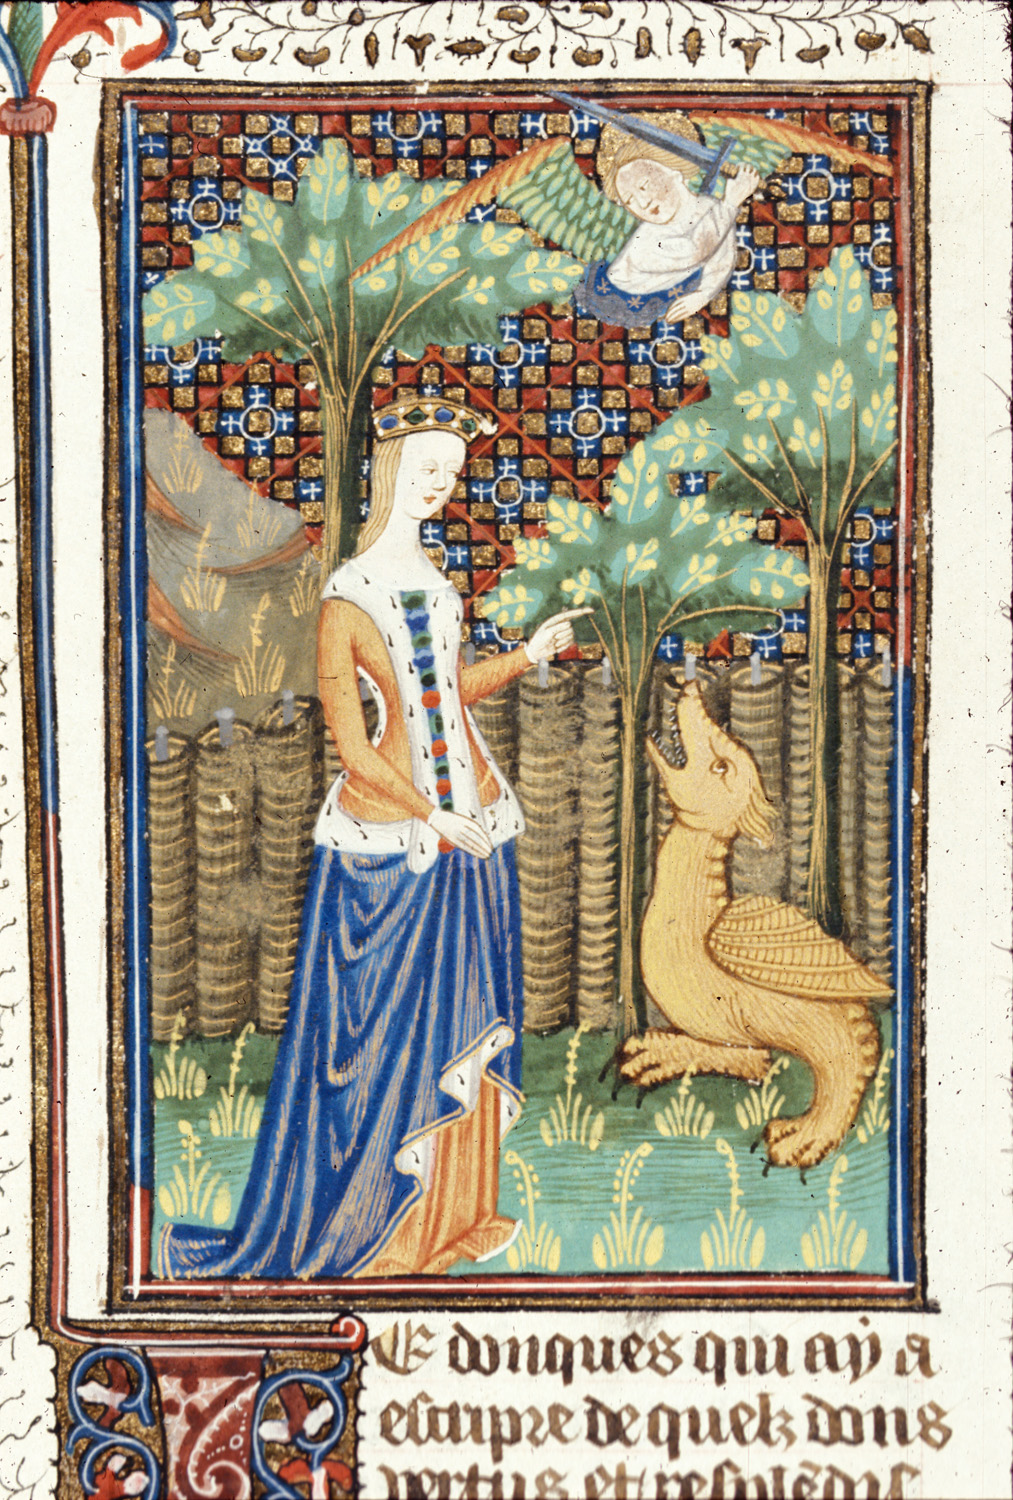 E donques qui ay a
escripre de quelz dons
vertus et resple͂dis